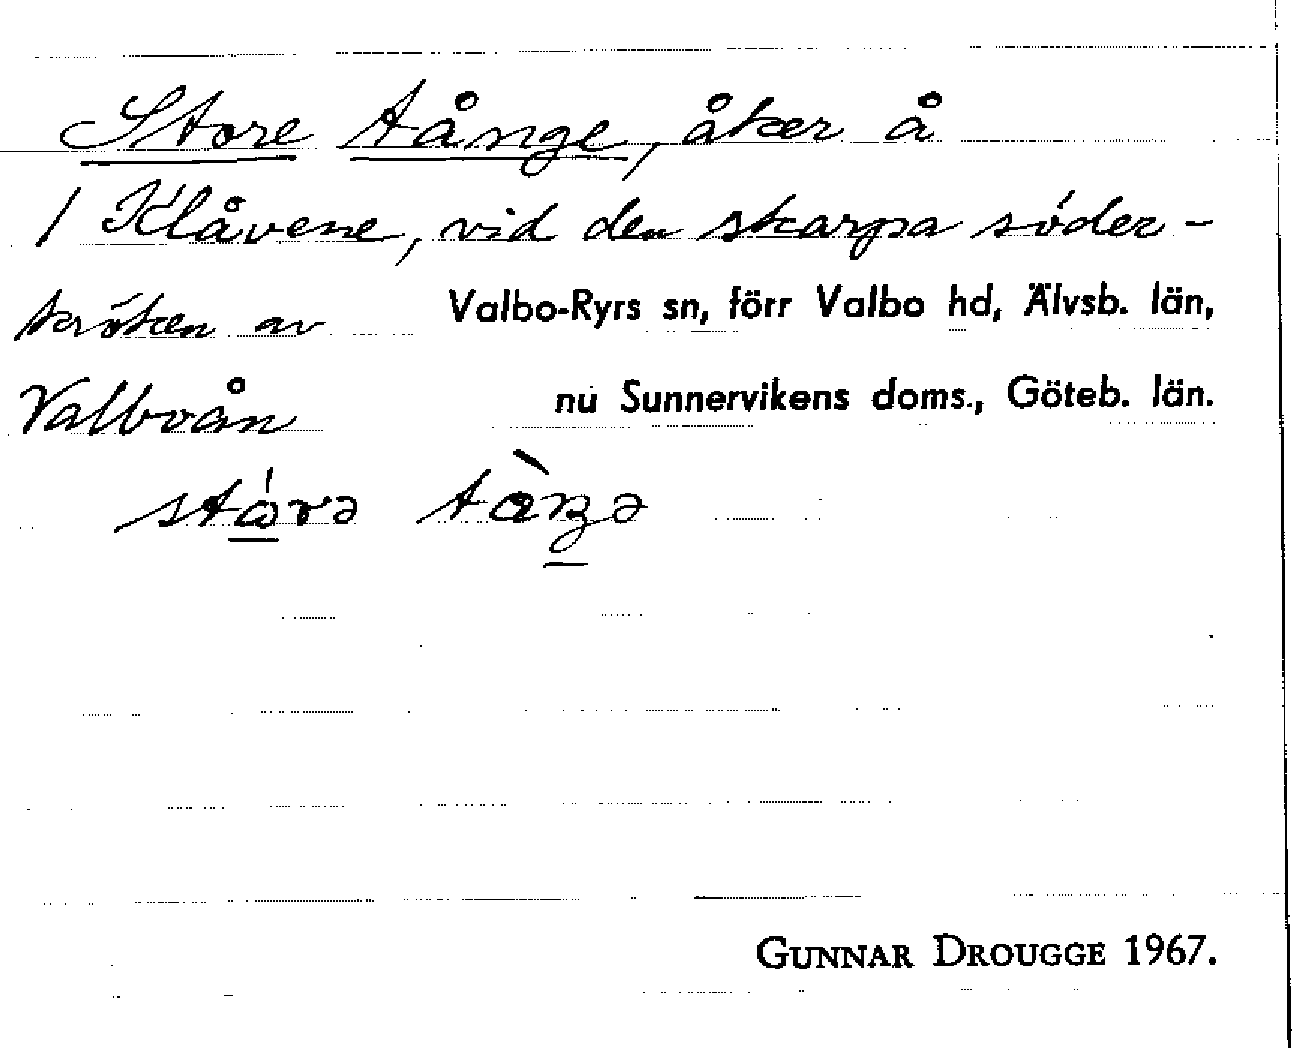 Store tånge, åker å
1 Klåvene, vid den skarpa söder-
kröken av Valbo-Ryrs sn, förr Valbo hd, Älvsb. län,
Valboån nu Sunnervikens doms., Göteb. län.
GUNNAR DROUGGE 1967.